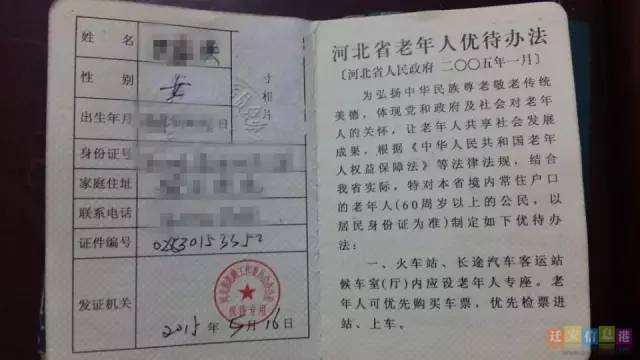 姓名
性别 女
出生年月
身份证号
家庭住址
联系电话
证件编号 02830153352
发证机关
2015年5月16日
河北省老年人优待办法
〔河北省人民政府 二〇〇五年一月〕
为弘扬中华民族尊老敬老传统
美德，体现党和政府及社会对老年
人的关怀，让老年人共享社会发展
成果，根据《中华人民共和国老年
人权益保障法》等法律法规，结合
我省实际，特对本省境内常住户口
的老年人（60周岁以上的公民，以
居民身份证为准）制定如下优待办
法：
一、火车站、长途汽车客运站
候车室（厅）内应设老年人专座。老
年人可优先购买车票，优先检票进
站、上车。
迁安信息港